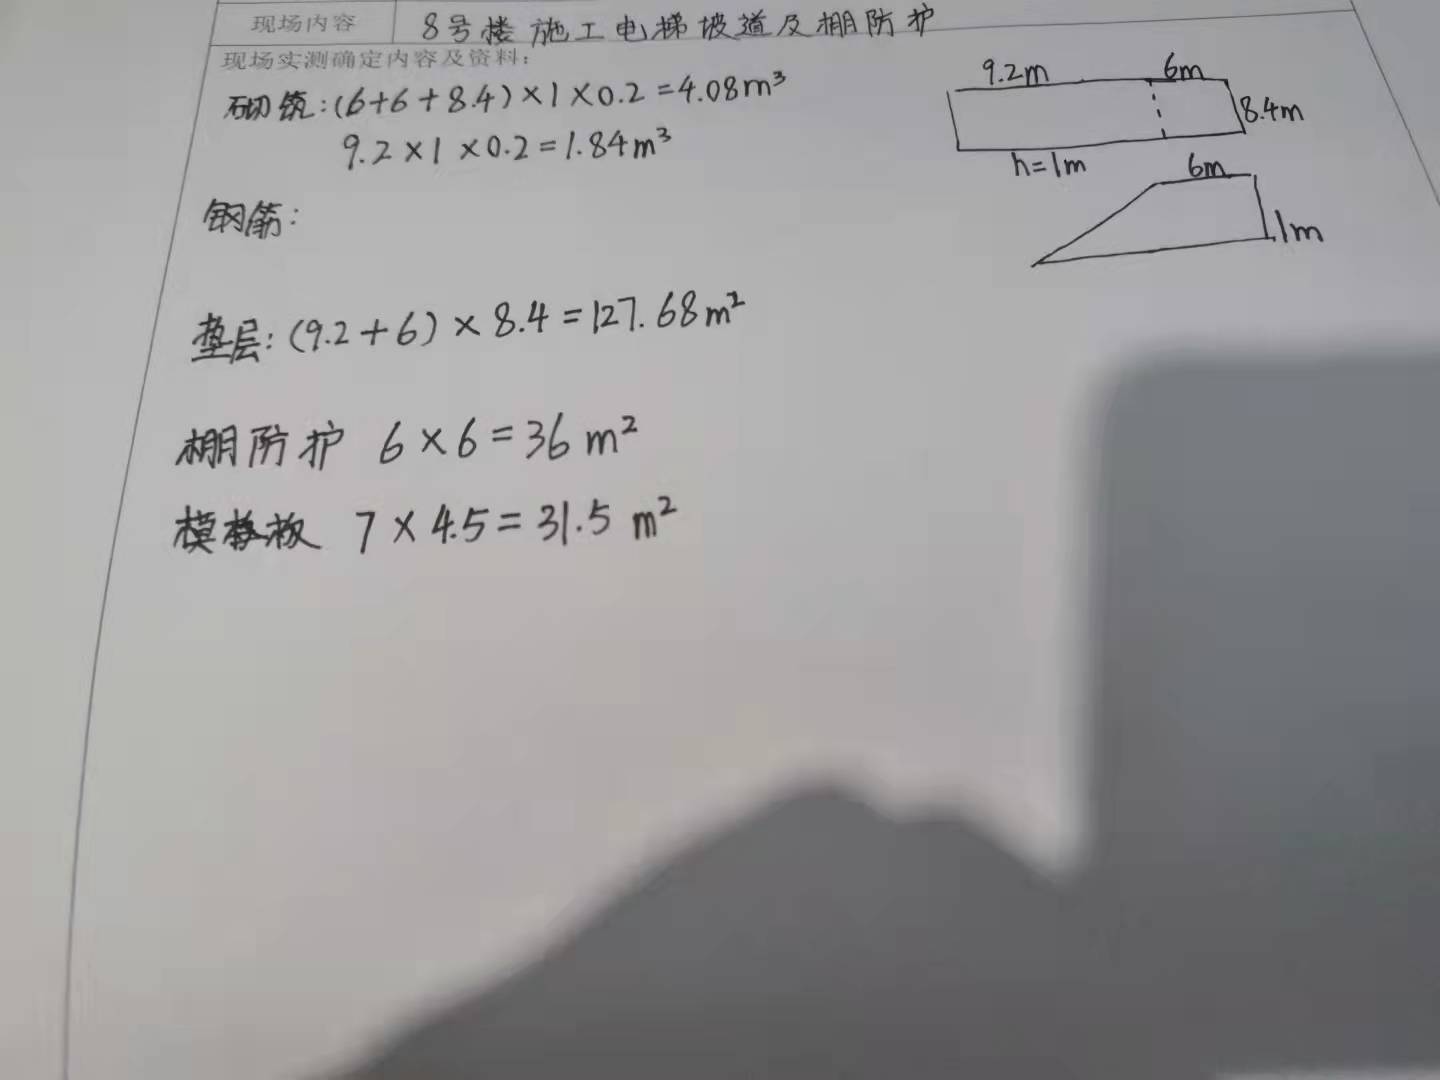 现场内容 8号楼施工电梯坡道及棚防护
现场实测确定内容及资料:
砌筑:(6+6+8.4)×1×0.2=4.08m³
9.2×1×0.2=1.84m³
9.2m 6m
8.4m
h=1m
6m
1m
钢筋:
垫层:(9.2+6)×8.4=127.68m²
棚防护 6×6=36m²
模板 7×4.5=31.5m²